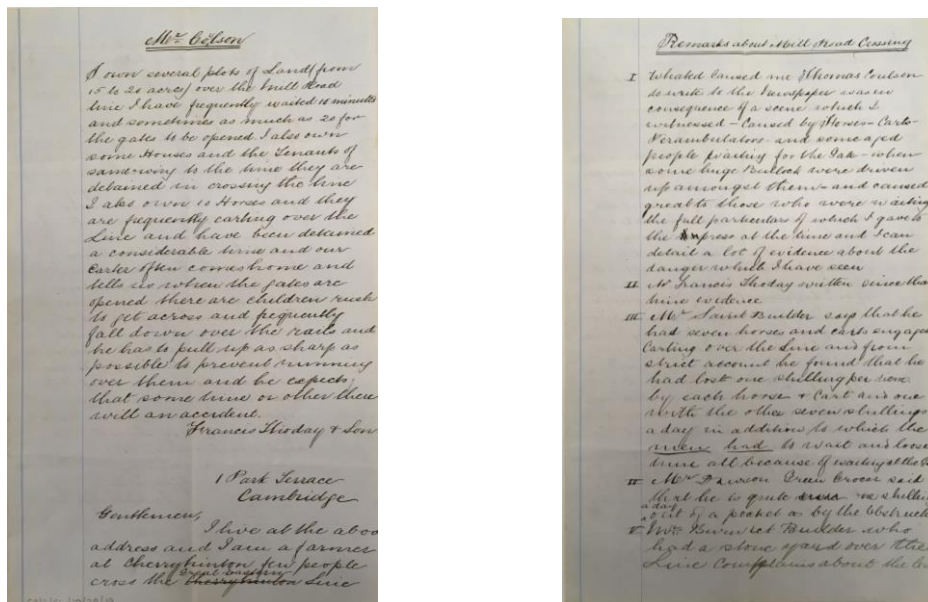 Mr Colson
I own several plots of Land (from
15 to 20 acres) over the Mill Road
line I have frequently waited 10 minutes
and sometimes as much as 20 for
the gates to be opened I also own
some Houses and the Tenants of
same owing to the time they are
detained in crossing the line
I also own 10 Horses and they
are frequently carting over the
Line and have been detained
a considerable time and our
Carter often comes home and
tells us when the gates are
opened there are children rush
to get across and frequently
fall down over the rails and
he has to pull up as sharp as
possible to prevent running
over them and he expects
that some time or other there
will an accident.
Francis Thoday & Son
1 Park Terrace
Cambridge
Gentlemen,
I live at the abov
address and I am a farmer
at Cherryhinton few people
Great Eastern
cross the Cherryhinton Line
Remarks about Mill Road Crossing
I What Caused me Thomas Coulson
to write to the Newspaper was in
consequence of a scene which I
witnessed - Caused by Horses - Carts -
Perambulators - and some aged
people waiting for the Gate - when
some huge Bullock were driven
up amongst them - and caused
great to those who were waiting
the full particulars of which I gave to
the Express at the time and I can
detail a lot of evidence about the
danger which I have seen
II Mr Francis Thoday written since that
time evidence
III Mr Saint Builder says that he
had seven horses and carts engaged
Carting over the Line and from
strict account he found that he
had lost one shilling per
by each horse & Cart and one
with the other seven shillings
a day in addition to which the
men had to wait and loose
time all because of waiting at the
IV Mr Dawson Green Grocer said
that he is quite shilling
a day
out of a pocket as by the Obstruct
V Builder who
had a stone yard over the
Line Complains about the